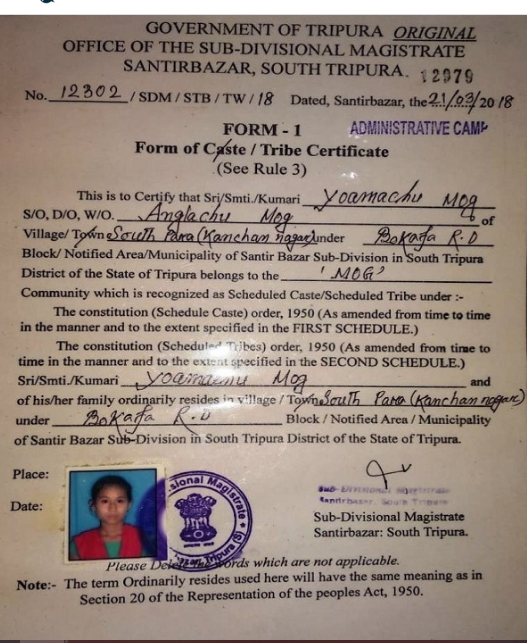 GOVERNMENT OF TRIPURA ORIGINAL
OFFICE OF THE SUB-DIVISIONAL MAGISTRATE
SANTIRBAZAR, SOUTH TRIPURA. 12979
No. 12302 / SDM / STB / TW / 18 Dated, Santirbazar, the 21/03/2018
FORM - 1 ADMINISTRATIVE CAMP
Form of Caste / Tribe Certificate
(See Rule 3)
This is to Certify that Sri/Smti./Kumari Yoamachu Mog
S/O, D/O, W/O. Anglachu Mog of
Village/ Town South Para (Kanchan nagar) under Bokafa R.D
Block/ Notified Area/Municipality of Santir Bazar Sub-Division in South Tripura
District of the State of Tripura belongs to the 'MOG'
Community which is recognized as Scheduled Caste/Scheduled Tribe under :-
The constitution (Schedule Caste) order, 1950 (As amended from time to time
in the manner and to the extent specified in the FIRST SCHEDULE.)
The constitution (Scheduled Tribes) order, 1950 (As amended from time to
time in the manner and to the extent specified in the SECOND SCHEDULE.)
Sri/Smti./Kumari Yoamachu Mog and
of his/her family ordinarily resides in village / Town South Para (Kanchan nagar)
under Bokafa R.D Block / Notified Area / Municipality
of Santir Bazar Sub-Division in South Tripura District of the State of Tripura.
Place:
Date:
sional Magistrate
Tripura (S)
Sub-Divisional Magistrate
Santirbazar, South Tripura
Sub-Divisional Magistrate
Santirbazar: South Tripura.
Please Delete the words which are not applicable.
Note:- The term Ordinarily resides used here will have the same meaning as in
Section 20 of the Representation of the peoples Act, 1950.